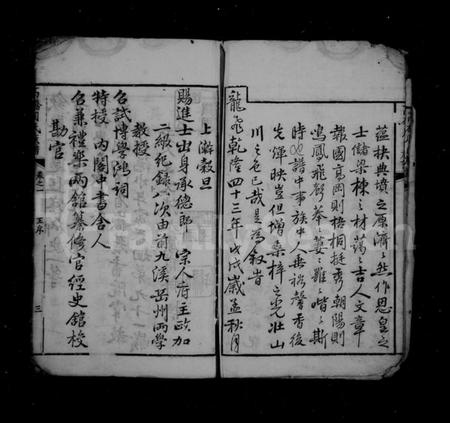 蕴扶典墳之原濟〻然作思皇之
士儲梁棟之材藹〻吉人文章
報國高岡則梧桐挺秀朝陽則
鳴鳳飛聲菶〻萋〻雝〻喈〻斯
時也譜中事族中人無不馨香後
先輝映豈但增桑梓之光壯山
川之色已哉是為敘旹
龍飛乾隆四十三年戊戌歲孟秋月
上澣穀旦
賜進士出身承德郎 宗人府主政加
二級紀錄一次由前九溪岳州兩學
教授
召試博學鴻詞
特授 內閣中書舍人
召兼禮樂兩館纂脩官經史館校
勘官
卷之一
五序
三